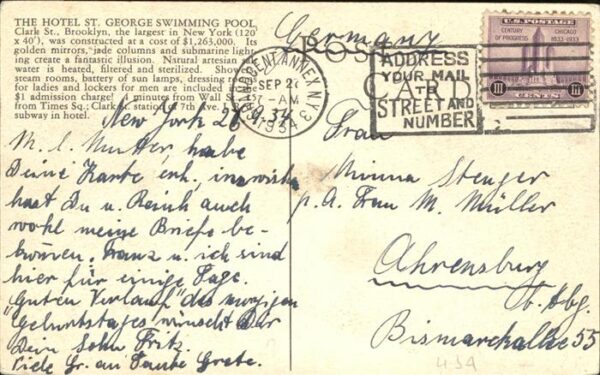 THE HOTEL ST. GEORGE SWIMMING POOL,
Clark St., Brooklyn, the largest in New York (120'
x 40'), was constructed at a cost of $1,263,000. Its
golden mirrors, jade columns and submarine light-
ing create a fantastic illusion. Natural artesian salt
water is heated, filtered and sterilized. Showers
steam rooms, battery of sun lamps, dressing rooms
for ladies and lockers for men are included
$1 admission charge! 4 minutes from Wall S
from Times Sq.; Clark St. station 7th Ave.
subway in hotel.
Germany
POST CARD
ANNEX N.Y. 3
SEP 27
7-AM
1934
ADDRESS
YOUR MAIL
TO
STREET AND
NUMBER
U.S. POSTAGE
CENTURY OF PROGRESS
1833-1933
CHICAGO
III CENTS III
New York 26.9.34
M. l. Mutter, habe
Deine Karte erh. inzwisch
hast Du u. Reich auch
wohl meine Briefe be-
kommen. Franz u. ich sind
hier für einige Tage.
Guten Verlauf des
Geburtstages wünscht Dir
Dein Sohn Fritz.
Viele Gr. an Tante Grete.
Frau
Minna Stenger
p. A. Frau M. Müller
Ahrensburg
b. Hbg.
Bismarckallee 55